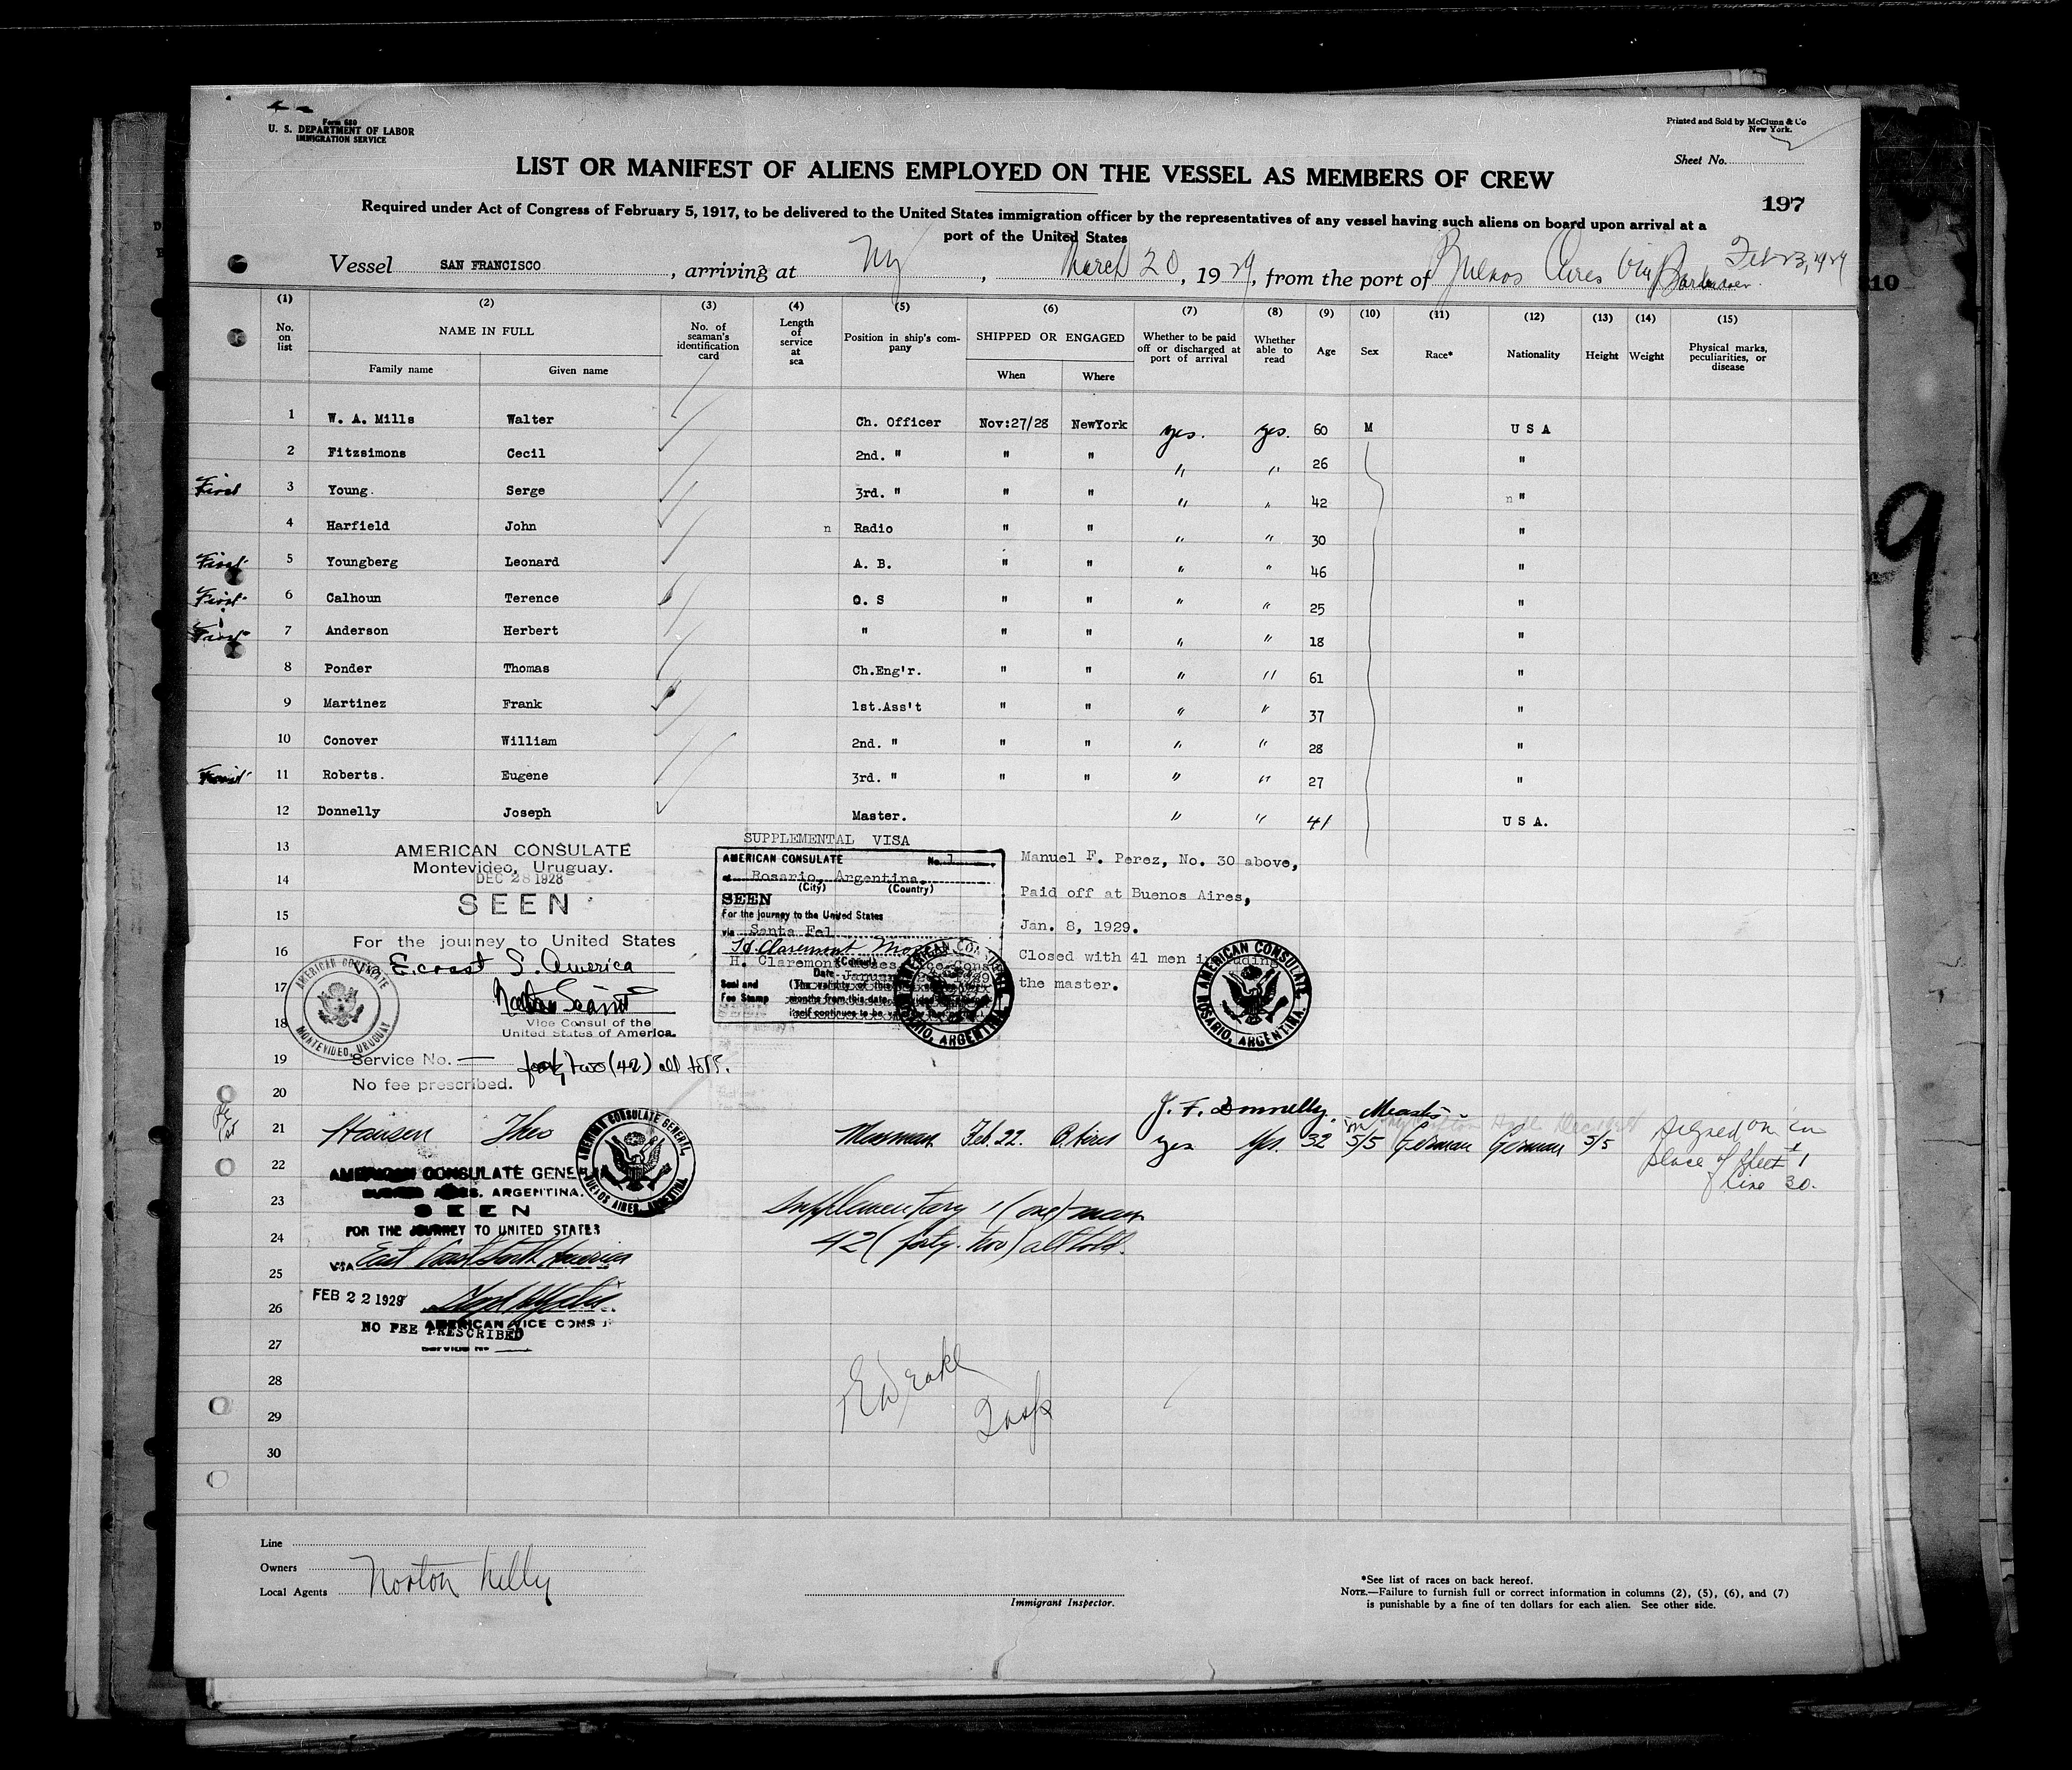 Form 680
U. S. DEPARTMENT OF LABOR
IMMIGRATION SERVICE
Printed and Sold by McClunn & Co
New York.
Sheet No.
LIST OR MANIFEST OF ALIENS EMPLOYED ON THE VESSEL AS MEMBERS OF CREW
197
Required under Act of Congress of February 5, 1917, to be delivered to the United States immigration officer by the representatives of any vessel having such aliens on board upon arrival at a
port of the United States
Vessel SAN FRANCISCO, arriving at Ny, March 20, 1929, from the port of Buenos Aires Via Feb 23, 1929
10
(1) (2) (3) (4) (5) (6) (7) (8) (9) (10) (11) (12) (13) (14) (15)
No. on list
NAME IN FULL
Family name
Given name
No. of seaman's identification card
Length of service at sea
Position in ship's company
SHIPPED OR ENGAGED
When
Where
Whether to be paid off or discharged at port of arrival
Whether able to read
Age
Sex
Race*
Nationality
Height
Weight
Physical marks, peculiarities, or disease
1 W. A. Mills Walter Ch. Officer Nov:27/28 NewYork yes. yes. 60 M U S A
2 Fitzsimons Cecil 2nd. " " " " " 26 "
3 Young. Serge 3rd. " " " " " 42 n "
4 Harfield John n Radio " " " " 30 "
5 Youngberg Leonard A. B. " " " " 46 "
6 Calhoun Terence O. S " " " " 25 "
7 Anderson Herbert " " " " " 18 "
8 Ponder Thomas Ch.Eng'r. " " " " 61 "
9 Martinez Frank 1st.Ass't " " " " 37 "
10 Conover William 2nd. " " " " " 28 "
11 Roberts. Eugene 3rd. " " " " " 27 "
12 Donnelly Joseph Master. " " 41 U S A.
13
14
15
16
17
18
19
20
AMERICAN CONSULATE
Montevideo, Uruguay.
DEC 28 1928
SEEN
For the journey to United States
Via E. coast S. America
Vice Consul of the
United States of America.
Service No. —
forty two (42) all told.
No fee prescribed.
AMERICAN CONSULATE
MONTEVIDEO, URUGUAY
SUPPLEMENTAL VISA
AMERICAN CONSULATE No. 1
at Rosario, Argentina.
(City) (Country)
SEEN
For the journey to the United States
via Santa Fe
H. Claremont Moses
(Consul)
Date January
Seal and
Fee Stamp
Manuel F. Perez, No. 30 above,
Paid off at Buenos Aires,
Jan. 8, 1929.
Closed with 41 men including
the master.
AMERICAN CONSULATE
ROSARIO, ARGENTINA.
AMERICAN CONSULATE
ROSARIO, ARGENTINA.
J. F. Donnelly. Master
21 Hansen Theo Messman Feb. 22. B. Aires yes yes. 32 m 5/5 German German 5/5
Signed on in
place of Sheet 1
line 30.
22
23
24
25
26
27
28
29
30
AMERICAN CONSULATE GENERAL
BUENOS AIRES, ARGENTINA.
AMERICAN CONSULATE GENERAL
BUENOS AIRES. ARGENTINA.
SEEN
FOR THE JOURNEY TO UNITED STATES
VIA East Coast South America
FEB 22 1929
AMERICAN VICE CONSUL
NO FEE PRESCRIBED
Service No
Supplementary 1 (one) man
42 (forty-two) all told.
Line
Owners
Local Agents Norton Lilly
Immigrant Inspector.
*See list of races on back hereof.
NOTE.—Failure to furnish full or correct information in columns (2), (5), (6), and (7)
is punishable by a fine of ten dollars for each alien. See other side.
9